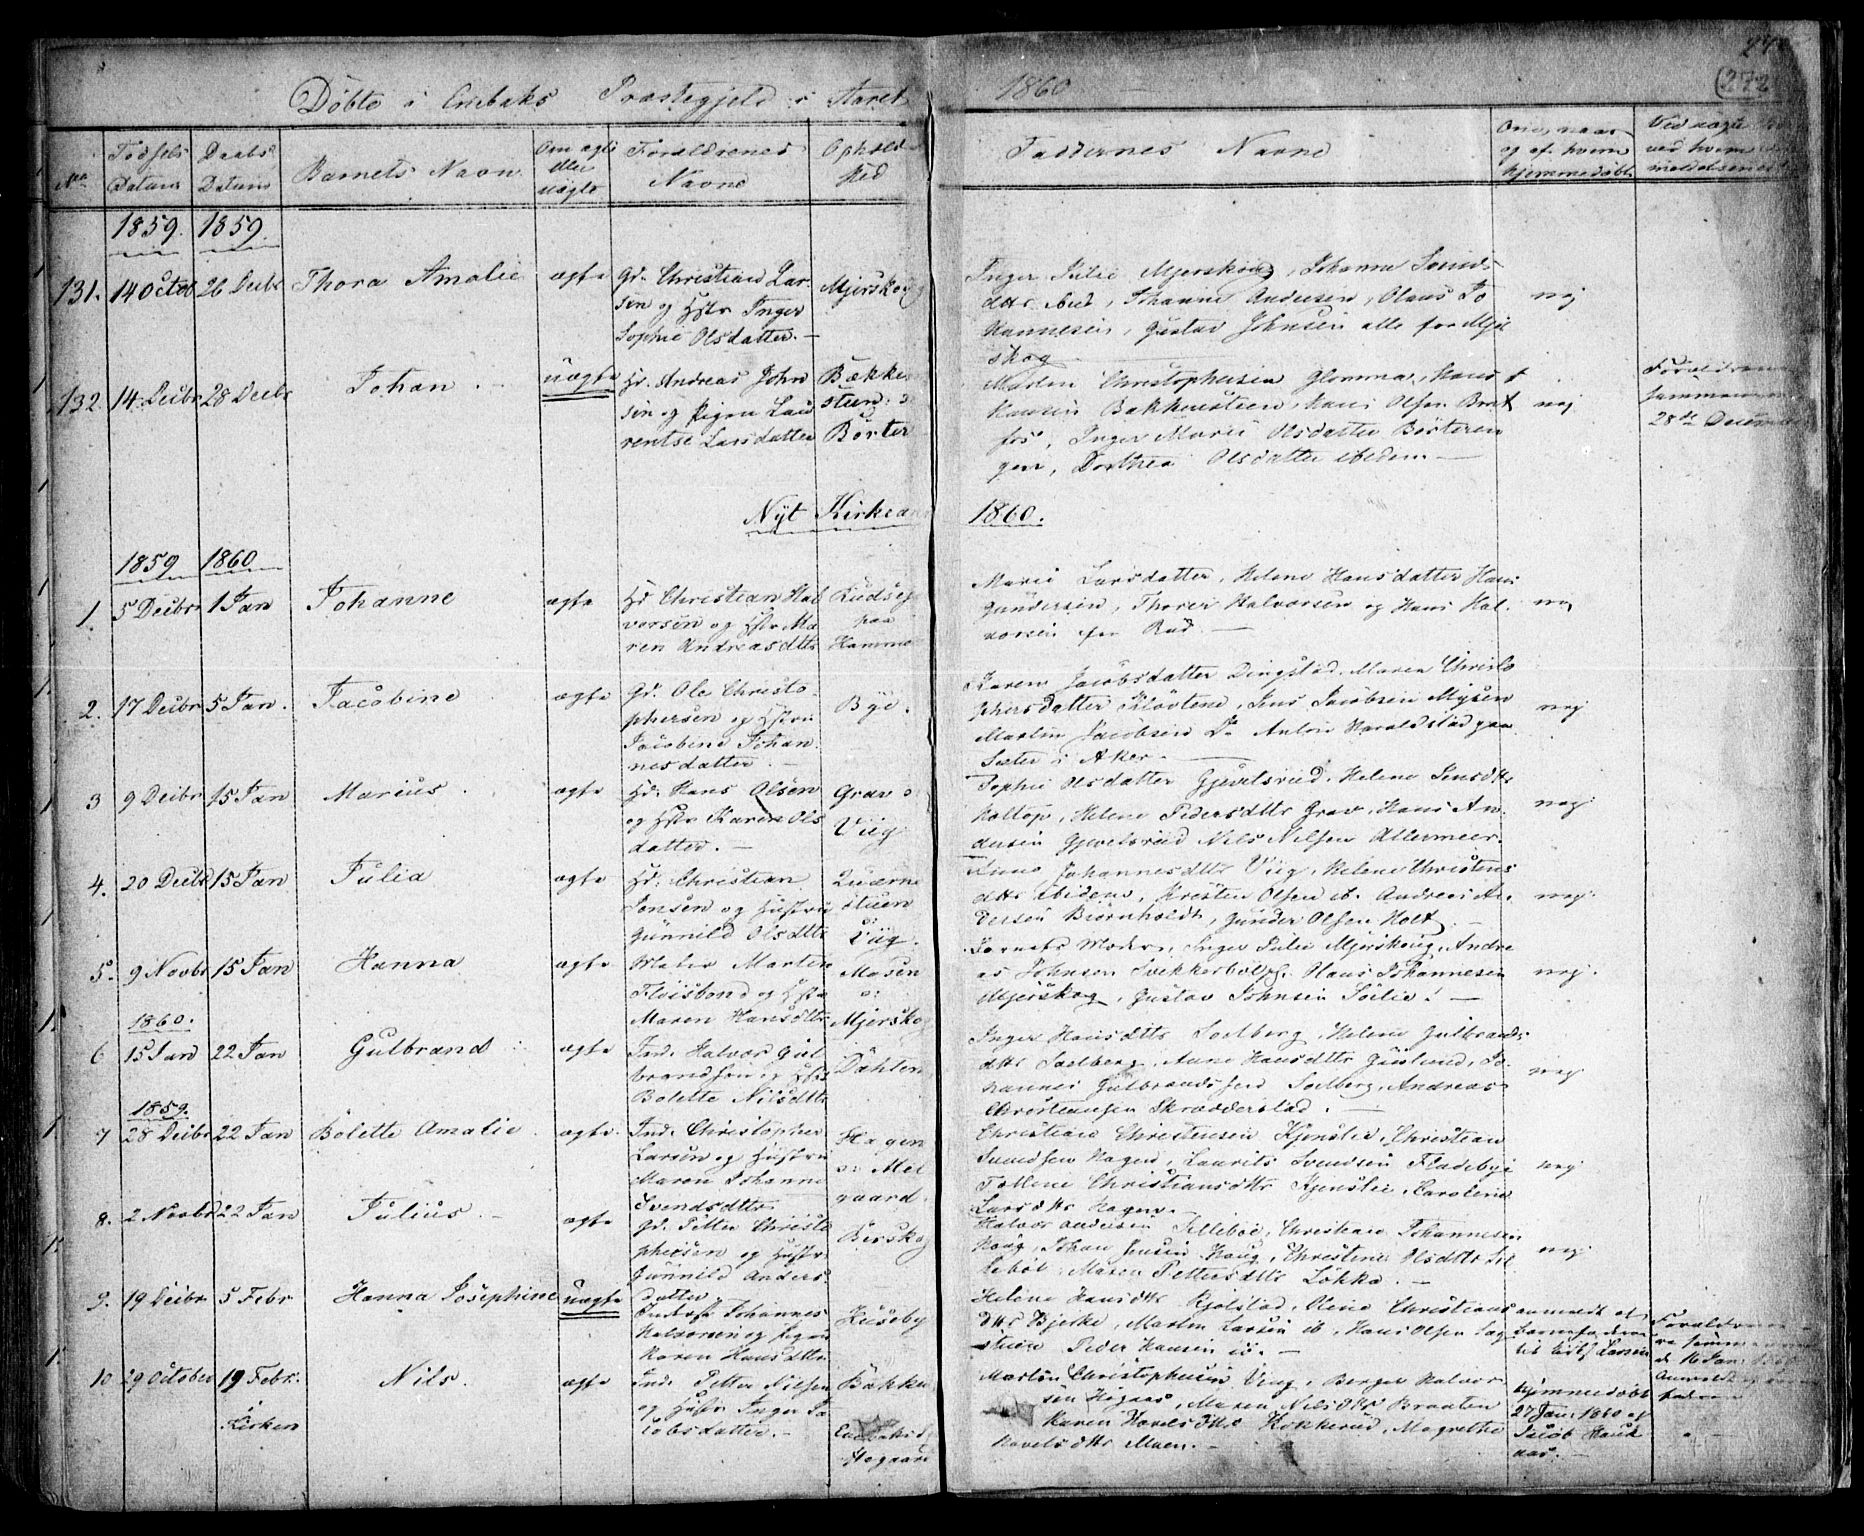 272
Döbte i Enebaks Præstegjeld i Aaret 1860
No
Födsels Datum
Daabs Datum
Barnets Navn
Om ægte eller uægte
Forældrenes Navne
Opholdssted
Faddernes Navne
Om, naar og af hvem hjemmedöbt
1859. 1859.
131. 14 Octob 26 Decbr Thora Amalie ægte
Gd. Christian Lar
sen og Hstr Inger
Sophie Olsdatter.
Mjerskog
Inger Julie Mjerskoug, Johanne Svends
dttr ibid, Johanne Andersen, Olaus Jo
hannesen, Gustav Johnsen alle fra Mjer
skog
nej
132. 14 Decbr 28 Decbr Johan uægte
Hd. Andreas John
sen og Pigen Lau
rentse Larsdatter
Bække
stuen
Börter
Martin Christophersen Glomma, Hans
Hansen Bakkestuen, Hans Olsen Brat
fos, Inger Marie Olsdatter Börteren
gen, Dorthea Olsdatter ibidem.
nej
Forældrenes
28de December
Nyt Kirkeaar 1860.
1859 1860
1. 5 Decbr 1 Jan Johanne ægte
Hd Christian Hal
vorsen og Hstr Ma
ren Andreasdttr
paa
Marie Larsdatter, Helene Hansdatter Hans
Gundersen, Thorer Halvorsen og Hans Hal
vorsen fra Rud.
nej
2. 17 Decbr 5 Jan. Jacobine ægte
Gd. Ole Christo
phersen og Hstru
Jacobine Johan
nesdatter.
Bye.
Karen Jacobsdatter Dingstad, Maren Christo
phersdatter Klövtene, Jens Jacobsen Mysen
Martin Jacobsen Do Anton Haraldstad paa
i Aker.
nej
3 9 Decbr 15 Jan Marius. ægte
Hd. Hans Olsen
og Hstr Karen Ols
datter.
Grav
Viig
Sophie Olsdatter Gjevelsrud, Helene Jensdttr
Holtop, Helene Pedersdttr Grav, Hans An
dersen Gjevelsrud Nils Nilsen
nej
4. 20 Decbr 15 Jan Julia ægte
Hd. Christian
Jonsen og Hustru
Gunnild Olsdttr
Quærne
stuen
Viig.
Johannesdttr Viig, Helene Christens
dttr ibidem, Kresten Olsen ib. Andreas An
dersen Biörnholdt, Gunder Olsen Holt
nej
5. 9 Novbr 15 Jan Hanna ægte
Maler Martin
og Hstr
Maren Hansdttr
Mosen
Mjerskog
Barnets Moder, Inger Julie Mjerskoug, Andre
as Johnsen Olaus Johannesen
Mjerskog, Gustav Johnsen
nej.
1860.
6 15 Jan 22 Jan Gulbrand ægte
Ind. Halvor Gul
brandsen og Hstr
Bolette Nilsdttr
Dahlen
Inger Hansdttr Solberg, Helene Gulbrands
dttr Solberg, Anne Hansdttr Jo
hannes Gulbrandssen Solberg, Andreas
Christiansen Skrædderstad.
nej
1859.
7 28 Decbr 22 Jan Bolette Amalie ægte.
Ind. Christopher
Larsen og Hustru
Maren Johanne
Svendsdttr
Hagen
Mel
gaard.
Christian Christensen Kjenslie, Christian
Svendsen Hagen, Laurits Svendsen Fladebye
Christiansdttr Kjenslie, Caroline
Larsdttr Hagen.
nej
8. 2 Novbr 22 Jan Julius. ægte
Gd. Petter Christo
phersen og Hustr.
Gunnild Anders
datter
Berskog
Halvor Andersen Sillebøl, Christian Johannesen
Haug, Johan Jensen Haug, Christine Olsdttr Sil
lebøl. Maren Pettersdttr Løkka.
nej
9. 19 Decbr 5 Febr Hanna Josephine uægte
Johannes
Halvorsen og Pigen
Karen Hansdttr
Huseby
Helene Hansdttr Kjölstad, Olene Christians
dttr Bjerke, Martin Larsen ib, Hans Olsen
Peder Hansen ib.
anmeldt af
Larsen
Forældrene
10 29 October 19 Febr. Nils. ægte
i Kirken
Ind. Petter Nilsen
og Hustr Inger Ja
cobsdatter.
Martin Christophersen Viig, Berger Halvor
sen Maren Nilsdttr Braaten
Karen Havelsdttr Kokkerud, Magrethe
Havelsdttr Moen.
hjemmedöbt
27 Jan. 1860 af
Jacob Hauk
aas.